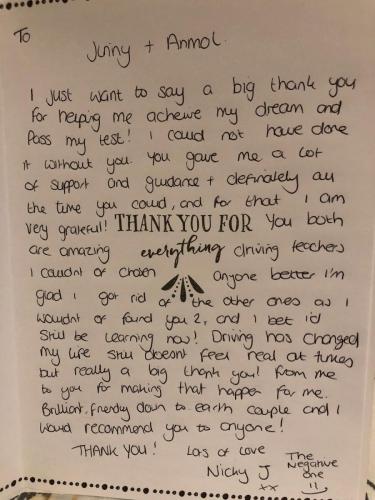 To
Juiny + Anmol.
I just want to say a big thank you
for helping me acheive my dream and
Pass my test! I could not have done
it without you. You gave me a lot
of support and guidance + definately all
the time you could, and for that I am
very grateful! THANK YOU FOR You both
are amazing everything driving teachers
I couldnt of chosen anyone better I'm
glad I got rid of the other ones as I
wouldnt of found you 2, and I bet I'd
Still be learning now! Driving has changed
my life still doesnt feel real at times
but really a big thank you! From me
to you for making that happen for me.
Brilliant, friendly down to earth couple and I
would recommend you to anyone!
THANK YOU! Lots of Love
Nicky J
xx
The
Negative
one